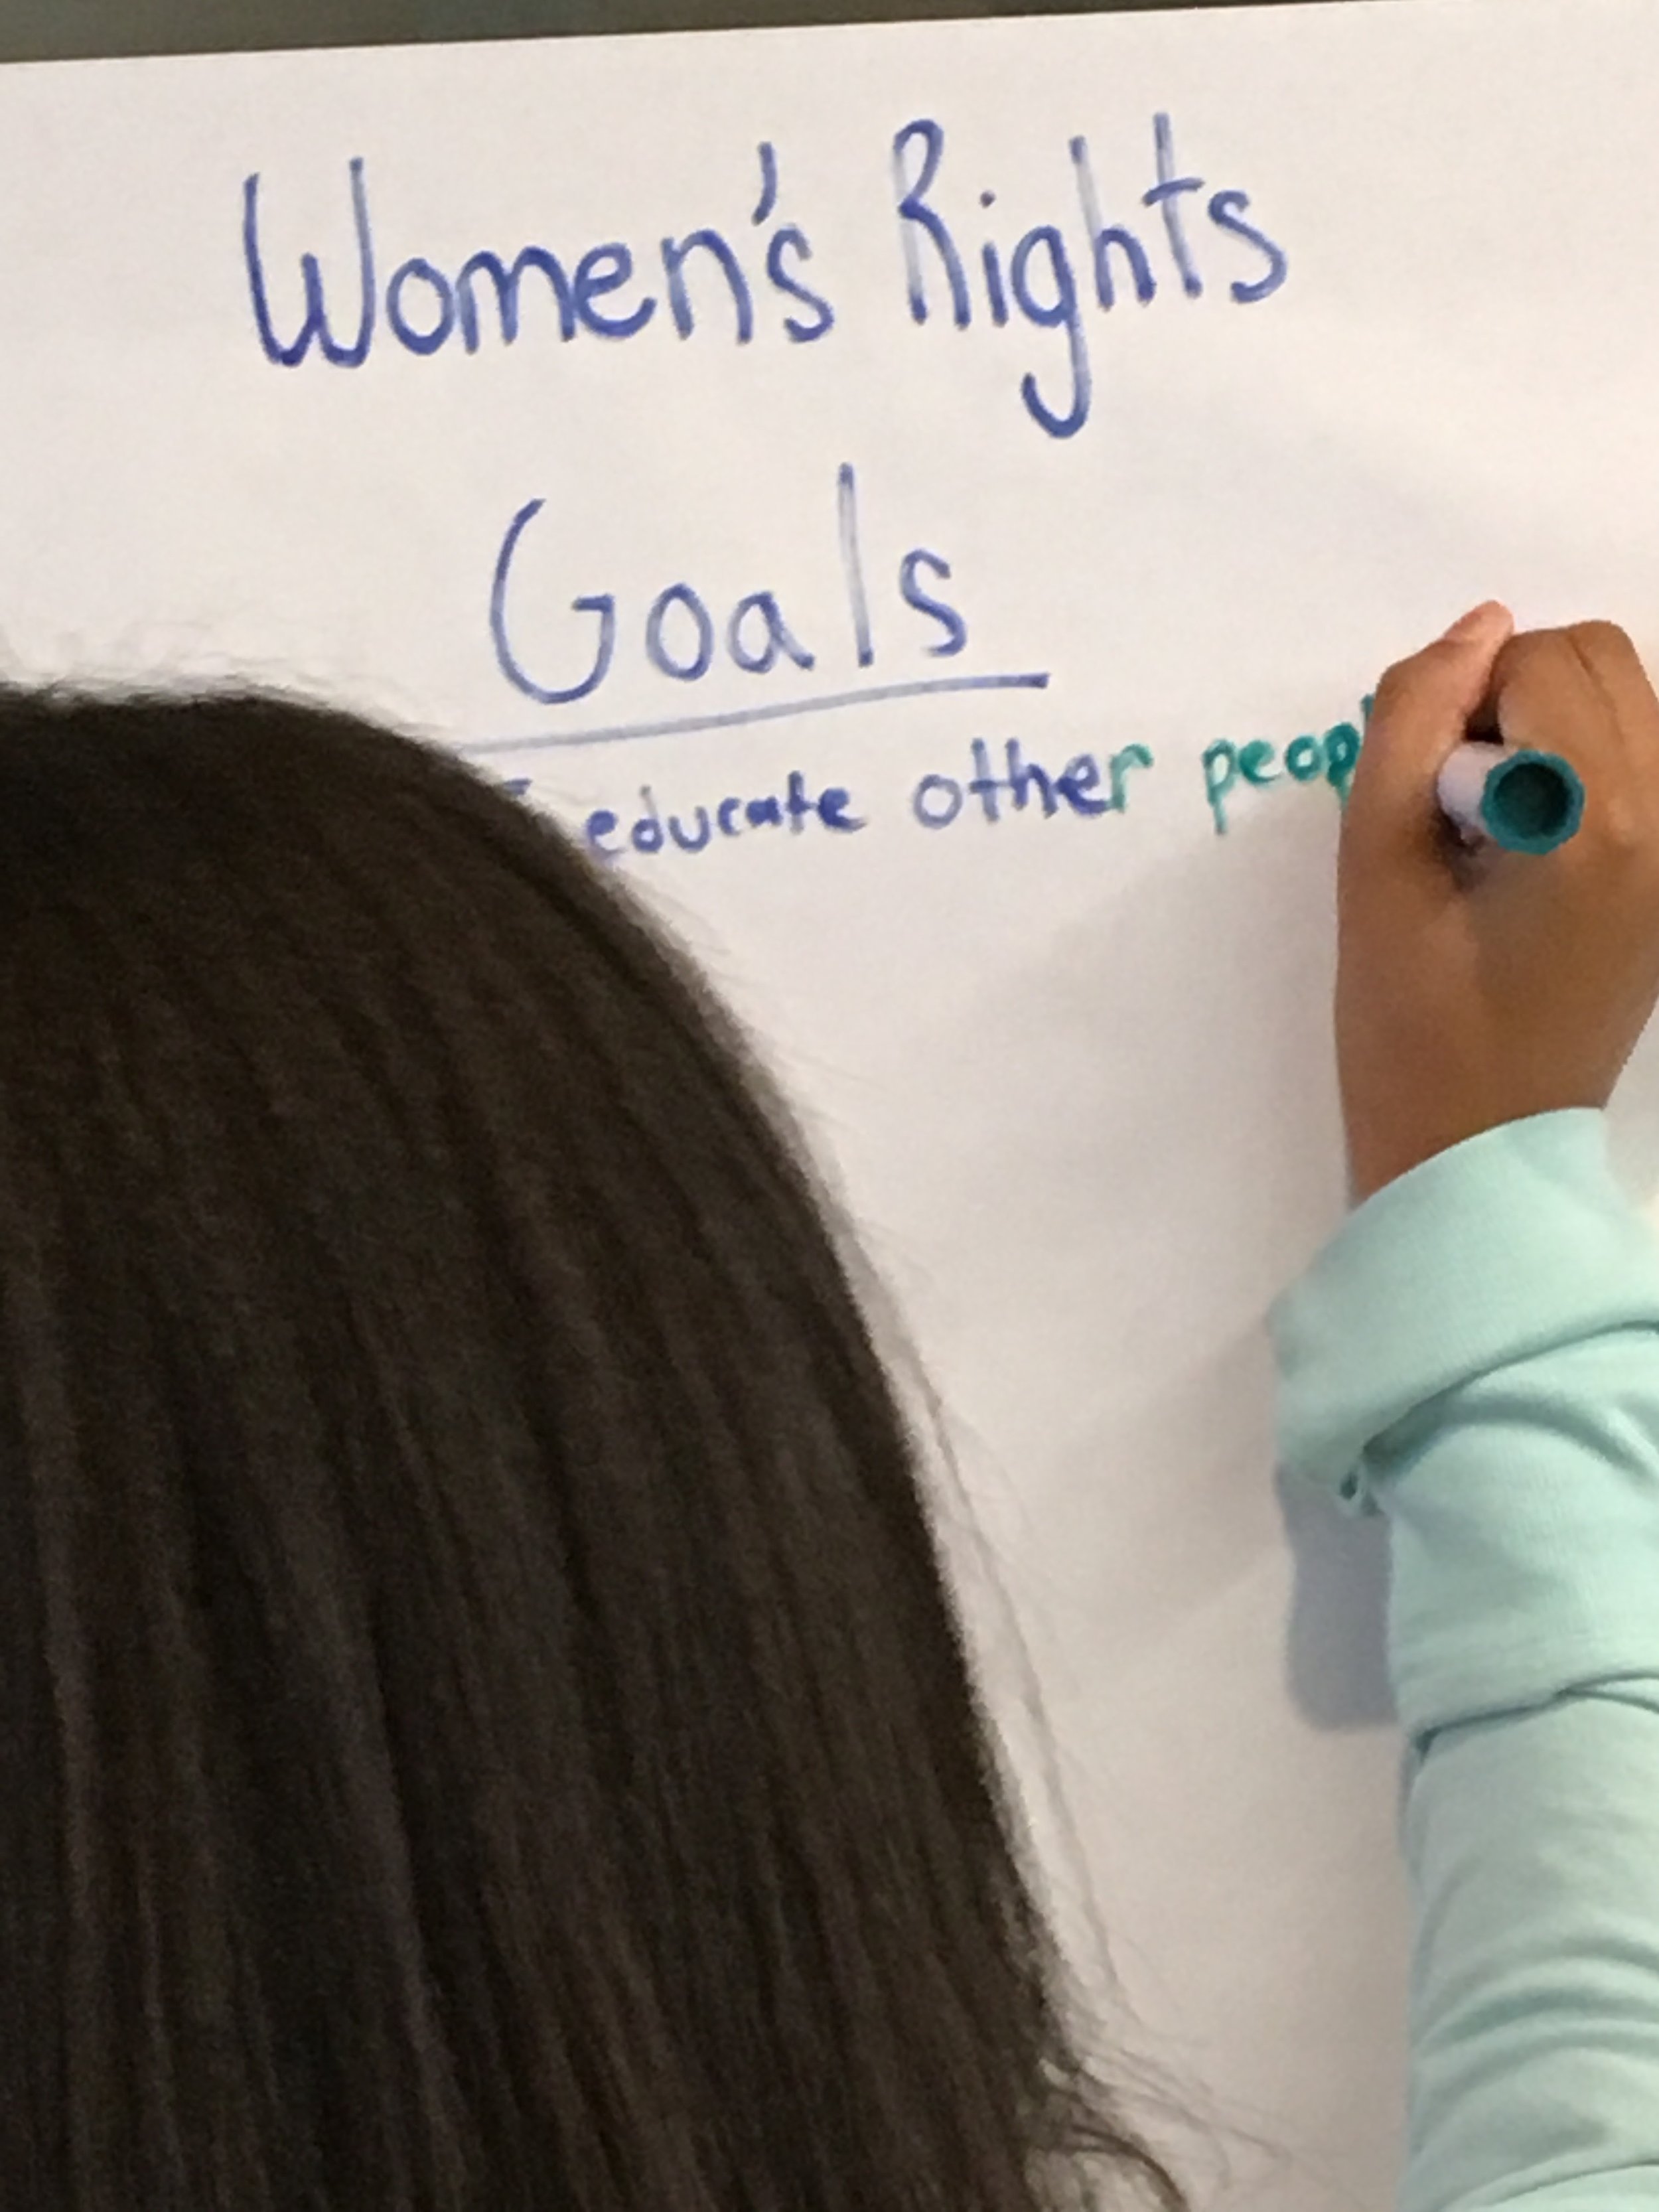 Women's Rights
Goals
educate other peop